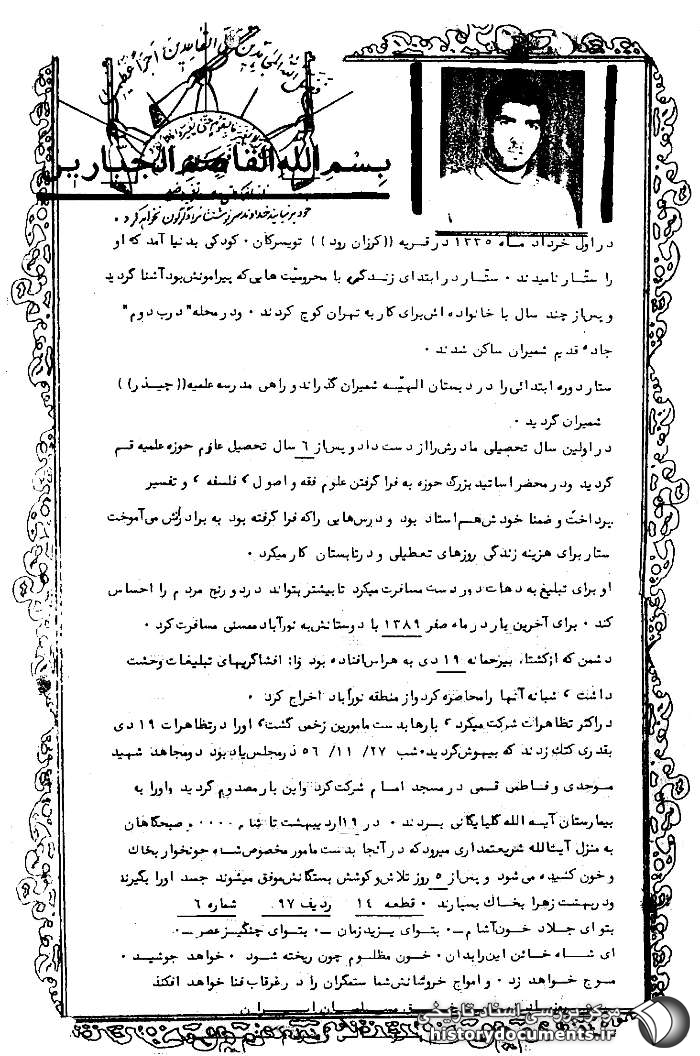 فضل الله المجاهدین علی القاعدین اجرا عظیما
بِسْمِ الله القاصِم الجبارین
در اول خرداد ماه ۱۳۳۵ در قریه ((کرزان رود)) تویسرکان ۰ کودکی بدنیا آمد که او
را ستّار نامیدند ۰ ستّار در ابتدای زندگی با محرومیّت هایی‌که پیرامونش‌بود آشنا گردید
و پس‌از چند سال با خانواده اش‌برای کار به تهران کوچ کردند ۰ ودر محله" درب دوم"
جاده قدیم شمیران ساکن شدند ۰
ستار دوره ابتدائی را در دبستان الهیّه شمیران گذراند و راهی مدرسه علمیه((چیذر))
شمیران گردید ۰
در اولین سال تحصیلی مادرش‌را از دست داد و پس‌از ۶ سال تحصیل عازم حوزه علمیه قم
گردید ودر محضر اساتید بزرگ حوزه به فرا گرفتن علوم فقه و اصول ، فلسفه ، و تفسیر
پرداخت و ضمنا خودش‌هم‌استاد بود و درس‌هایی راکه فرا گرفته بود به برادرانش می‌آموخت
ستار برای هزینه زندگی روزهای تعطیلی و درتابستان کار میکرد ۰
او برای تبلیغ به دهات دور دست مسافرت میکرد تا بیشتر بتواند درد و رنج مردم را احساس
کند ۰ برای آخرین بار در ماه صفر ۱۳۸۹ با دوستانش‌به نورآباد ممسنی مسافرت کرد ۰
دشمن که ازکشتار بیرحمانه ۱۹ دی به هراس‌افتاده بود واز افشاگریهای تبلیغات وحشت
داشت ، شبانه آنها رامحاصره کرد واز منطقه نورآباد اخراج کرد ۰
در اکثر تظاهرات شرکت میکرد ، بارها بدست مامورین زخمی گشت، اورا درتظاهرات ۱۹ دی
بقدری کتک زدند که بیهوش‌گردید۰شب ۲۷/ ۱۱/ ۵۶ در مجلس‌یادبود دومجاهد شهید
موحدی و فاطمی قمی درمسجد امام شرکت‌کرد واین بار مصدوم گردید واورا به
بیمارستان آیة الله گلپایگانی بردند ۰ در ۱۹اردیبهشت تا شام ۰۰۰۰و صبحگاهان
به منزل آیت‌الله شریعتمداری میرود که در آنجا بدست مامور مخصوص‌شاه خونخوار بخاک
و خون کشیده می‌شود و پس‌از ۵ روز تلاش‌و کوشش بستگانش‌موفق میشوند جسد اورا بگیرند
ودربهشت زهرا بخاک بسپارند ۰ قطعه ۱۴ ردیف ۹۷ شماره ۶
بتو ای جلاد خون‌آشام ـ۰ بتوای یزیدزمان ـ۰ بتوای چنگیزعصر ـ۰
ای شاه خائن این‌رابدان ۰ خون مظلوم چون ریخته شود ۰ خواهد جوشید ۰
موج خواهد زد ۰ و امواج خروشانش‌شما ستمگران را در غرقاب فنا خواهد افکند
مرکز بررسی اسناد تاریخی
historydocuments.ir